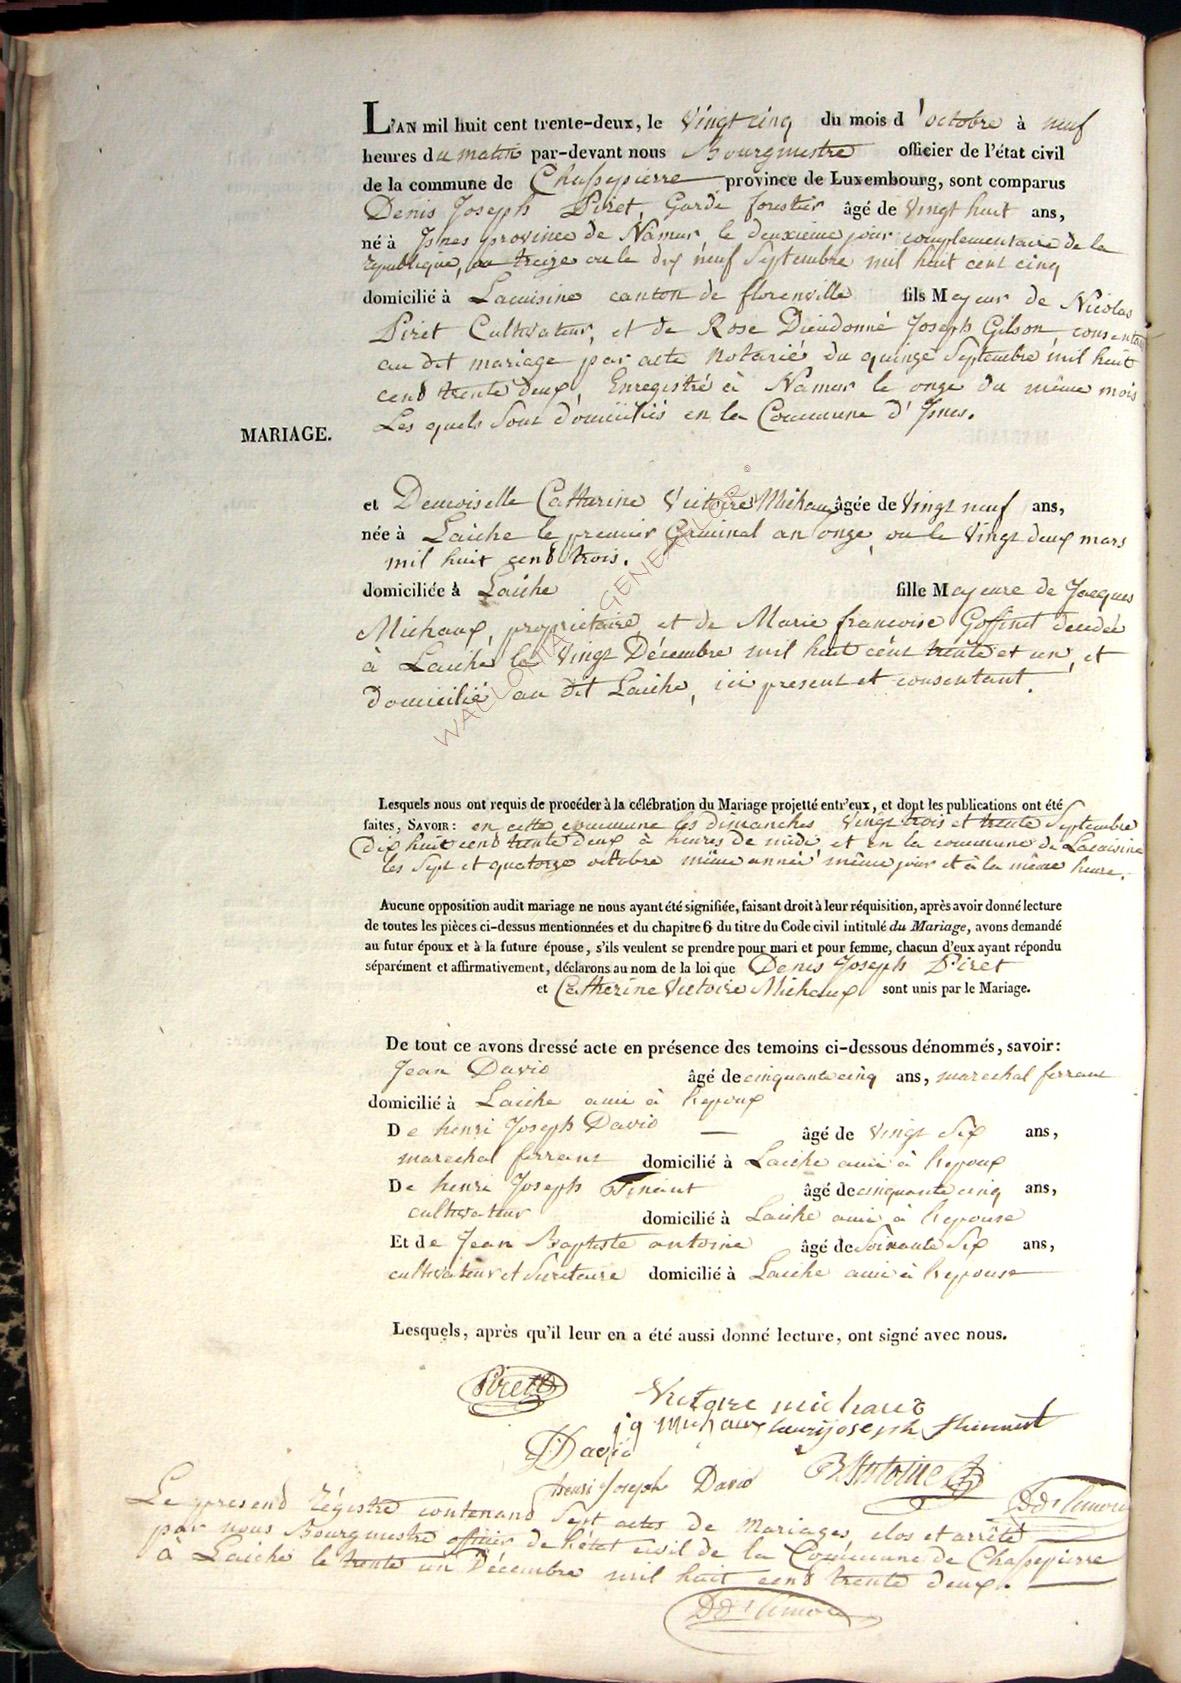 L'AN mil huit cent trente-deux, le Vingt cinq du mois d'octobre à neuf
heures du matin par-devant nous Bourgmestre officier de l'état civil
de la commune de Chassepierre province de Luxembourg, sont comparus
Denis Joseph Piret, Garde forestier âgé de Vingt huit ans,
né à Isnes province de Namur, le deuxieme jour complementaire de la
republique, an treize ou le dix neuf Septembre mil huit cent cinq
domicilié à Lacuisine canton de florenville fils Mayeur de Nicolas
Piret Cultivateur, et de Rose Dieudonné Joseph Gilson, consentant
au dit mariage par acte Notarié du quinze Septembre mil huit
cent trente deux, Enregistré à Namur le onze du même mois
Les quels Sont domiciliés en la Commune d'Isnes.
MARIAGE.
et Demoiselle Catharine Victoire Michaux âgée de Vingt neuf ans,
née à Laiche le premier Germinal an onze, ou le Vingt deux mars
mil huit cent trois.
domiciliée à Laiche fille Mayeure de Jacques
Michaux, propriétaire, et de Marie francoise Goffinet decedée
à Laiche le Vingt Décembre mil huit cent trente et un, et
domicilié au dit Laiche, ici present et consentant.
WALLONIA GENEALOGY ©
Lesquels nous ont requis de procéder à la célébration du Mariage projetté entr'eux, et dont les publications ont été
faites, SAVOIR: en cette commune les dimanches Vingt trois et trente Septembre
Dix huit cent trente deux à heures de midi et en la commune de Lacuisine
les Sept et quatorze octobre même année même jour et à la même heure.
Aucune opposition audit mariage ne nous ayant été signifiée, faisant droit à leur réquisition, après avoir donné lecture
de toutes les pièces ci-dessus mentionnées et du chapitre 6 du titre du Code civil intitulé du Mariage, avons demandé
au futur époux et à la future épouse, s'ils veulent se prendre pour mari et pour femme, chacun d'eux ayant répondu
séparément et affirmativement, déclarons au nom de la loi que Denis Joseph Piret
et Catherine Victoire Michaux sont unis par le Mariage.
De tout ce avons dressé acte en présence des temoins ci-dessous dénommés, savoir:
Jean David âgé de cinquante cinq ans, marechal ferrant
domicilié à Laiche ami à l'epoux
De henri Joseph David — âgé de Vingt Six ans,
marechal ferrant domicilié à Laiche ami à l'epoux
De henri Joseph Tinant âgé de cinquante cinq ans,
cultivateur domicilié à Laiche ami à l'epouse
Et de Jean Baptiste antoine âgé de Soixante Six ans,
cultivateur et Secretaire domicilié à Laiche ami à l'epouse
Lesquels, après qu'il leur en a été aussi donné lecture, ont signé avec nous.
Piret
Victoire michaux
jq michaux henri joseph
J David
henri Joseph David
B. Antoine
Le present régistre contenant Sept actes de Mariages, clos et arrêté
par nous Bourgmestre officier de l'état civil de la Commune de Chassepierre
à Laiche le trente un Décembre mil huit cent trente deux.